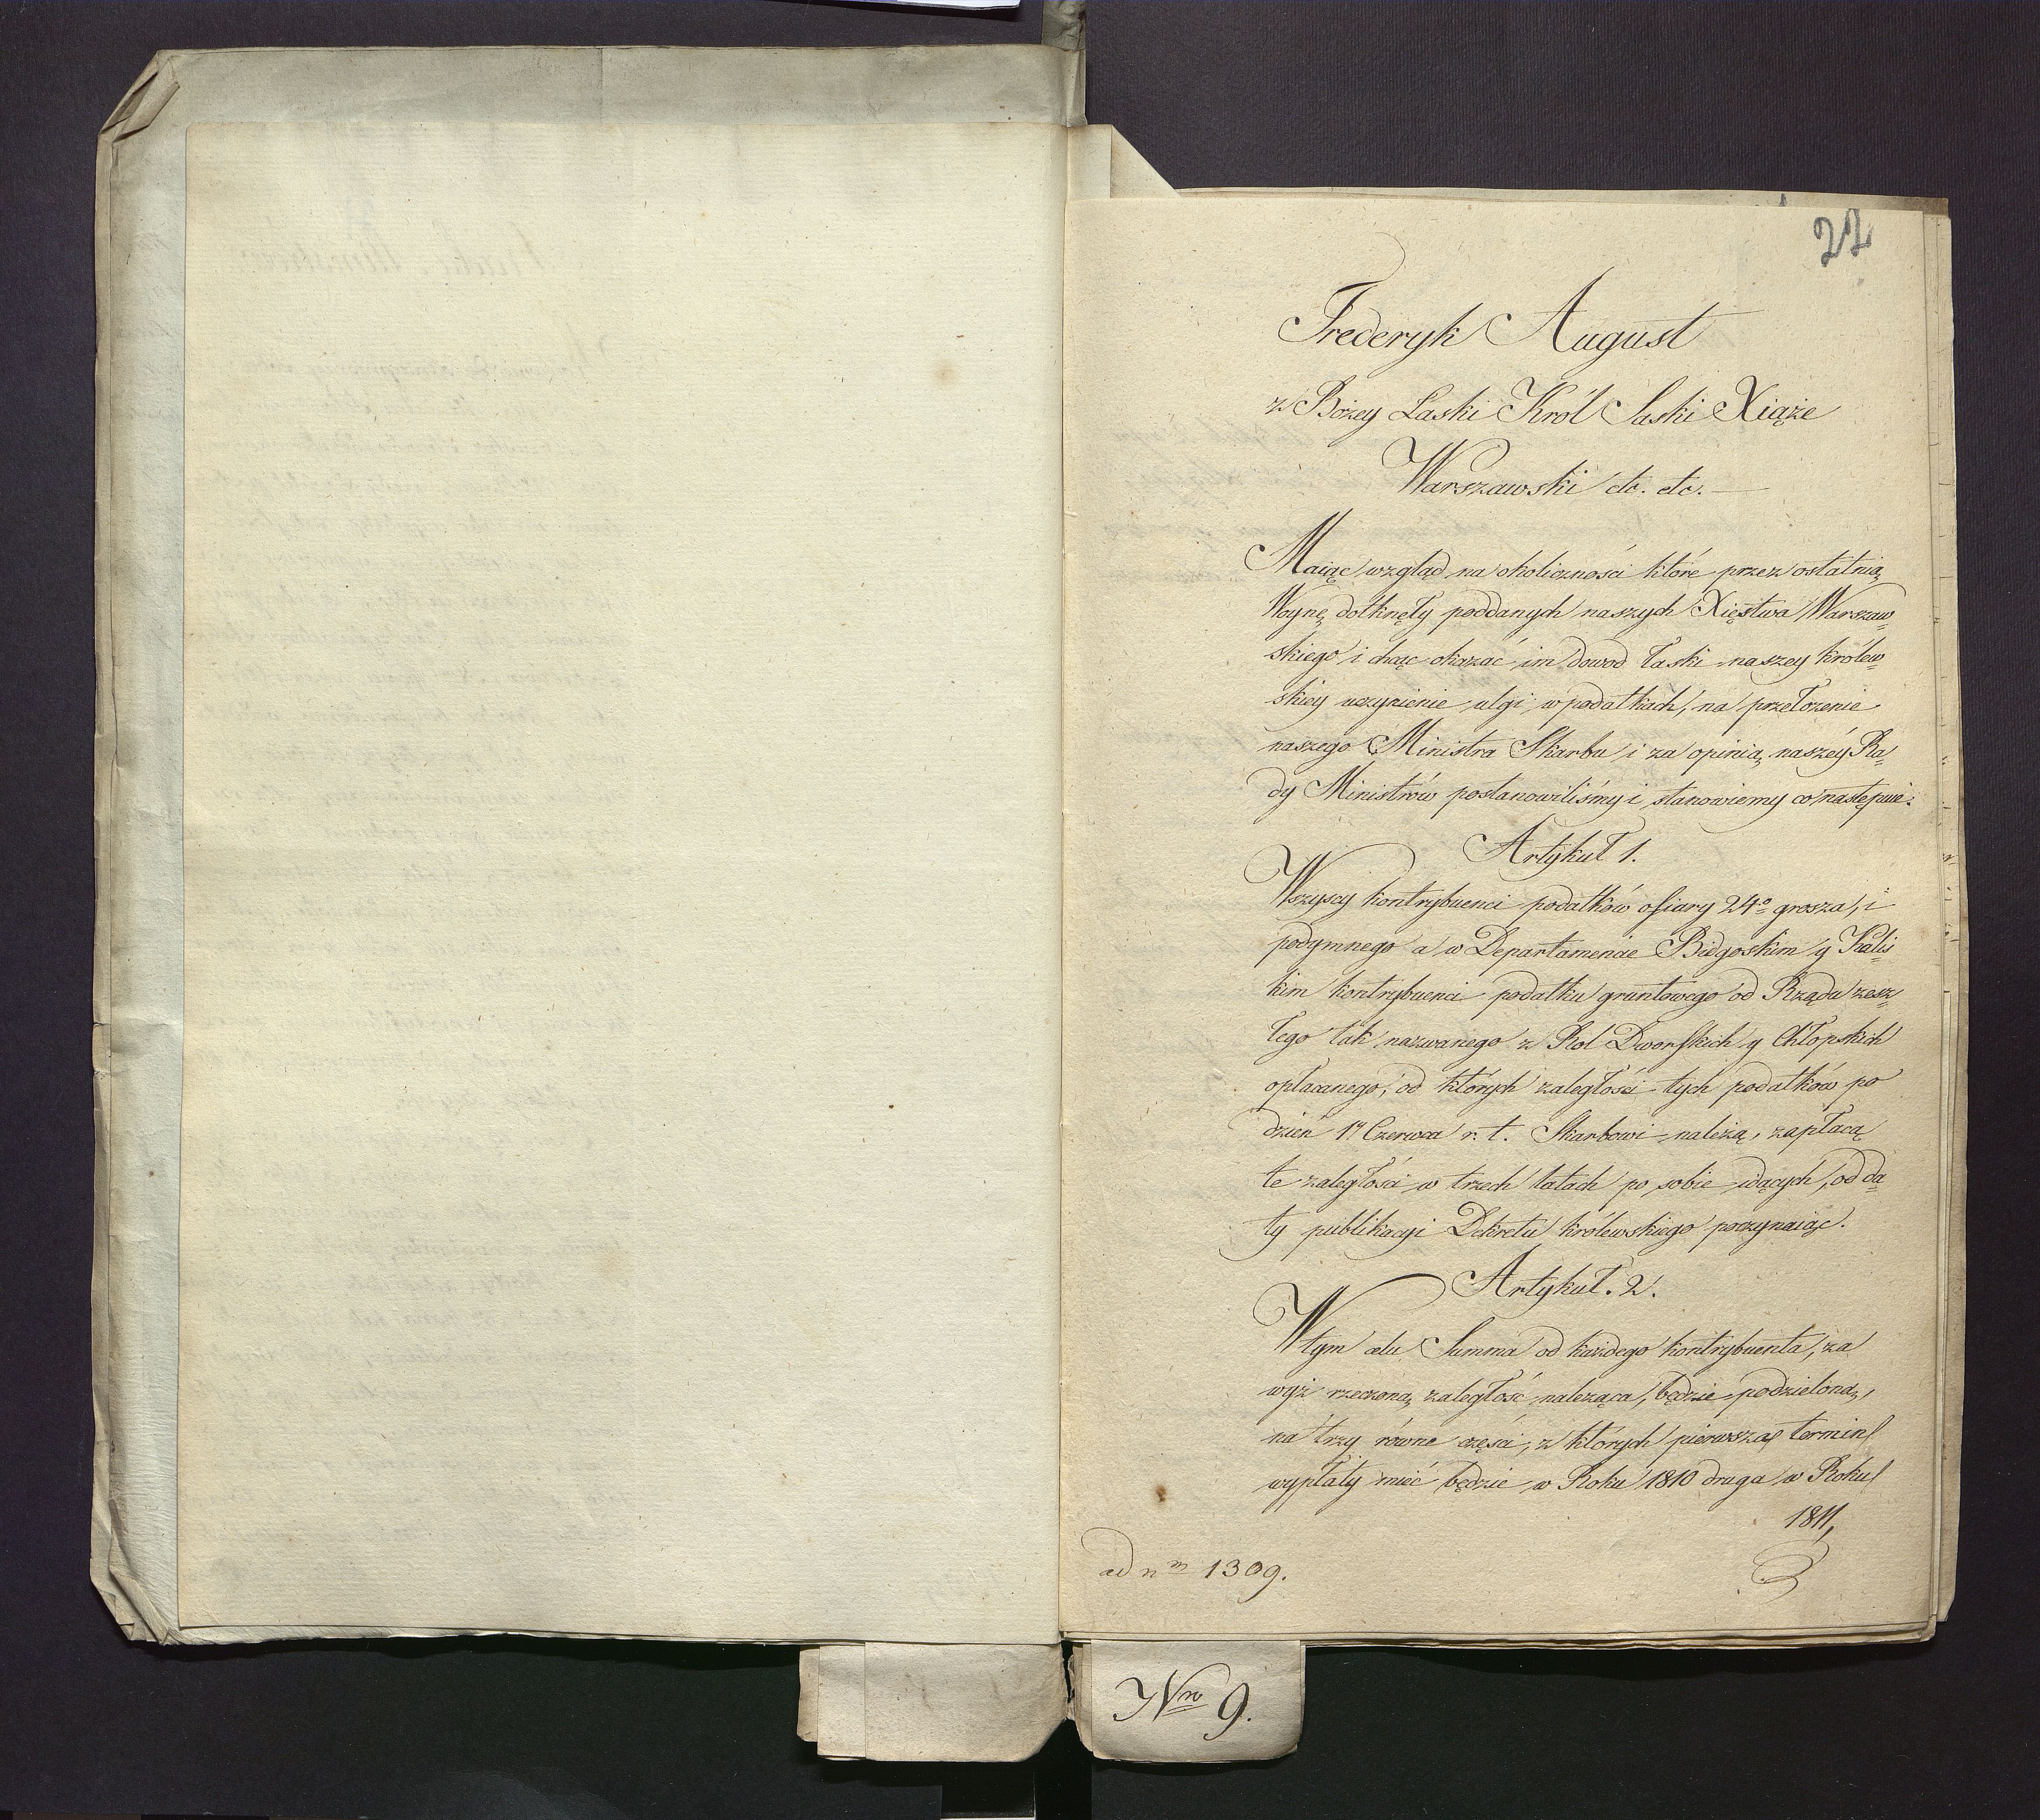 22
Frederyk August
z Bożey Łaski Król Saski Xiąże
Warszawski etc. etc. —
Maiąc wzgląd na okoliczności które przez ostatnią
Woynę dotknęły poddanych naszych Xięstwa Warszaw=
skiego i chcąc okazać im dowod łaski naszey królew=
skiey uczynienie ulgi w podatkach, na przełożenie
naszego Ministra Skarbu i za opinią naszéy Ra=
dy Ministrów postanowiliśmy i stanowiemy co następuie:
Artykuł 1.
Wszyscy kontrybuenci podatków ofiary 24º grosza, i
podymnego a w Departamencie Bidgoskim y Kalis=
kim kontrybuenci podatku gruntowego od Rządu zesz=
łego tak nazwanego z Rol Dworskich y Chłopskich
opłacanego, od których zaległości tych podatków po
dzień 1y Czerwca r. t. Skarbowi należą, zapłacą
te zaległości w trzech latach po sobie idących, od da=
ty publikacyi Dekretu królewskiego poczynaiąc.
Artykuł. 2.
W tym celu Summa od każdego kontrybuenta, za
wyż rzeczoną zaległość należąca, będzie podzieloną,
na trzy równe części, z których pierwsza termin
wypłaty mieć będzie w Roku 1810 druga w Roku
1811,
ad nm 1309.
Nro 9.